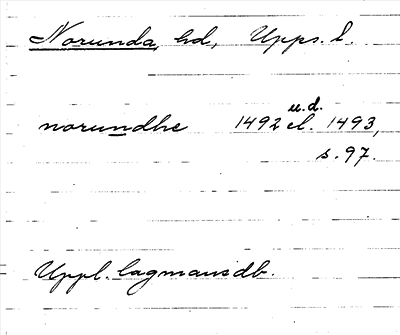 Norunda, hd, Upps. l.
norundhe 1492 u.d. el. 1493,
s. 97.
Uppl. lagmansdb.